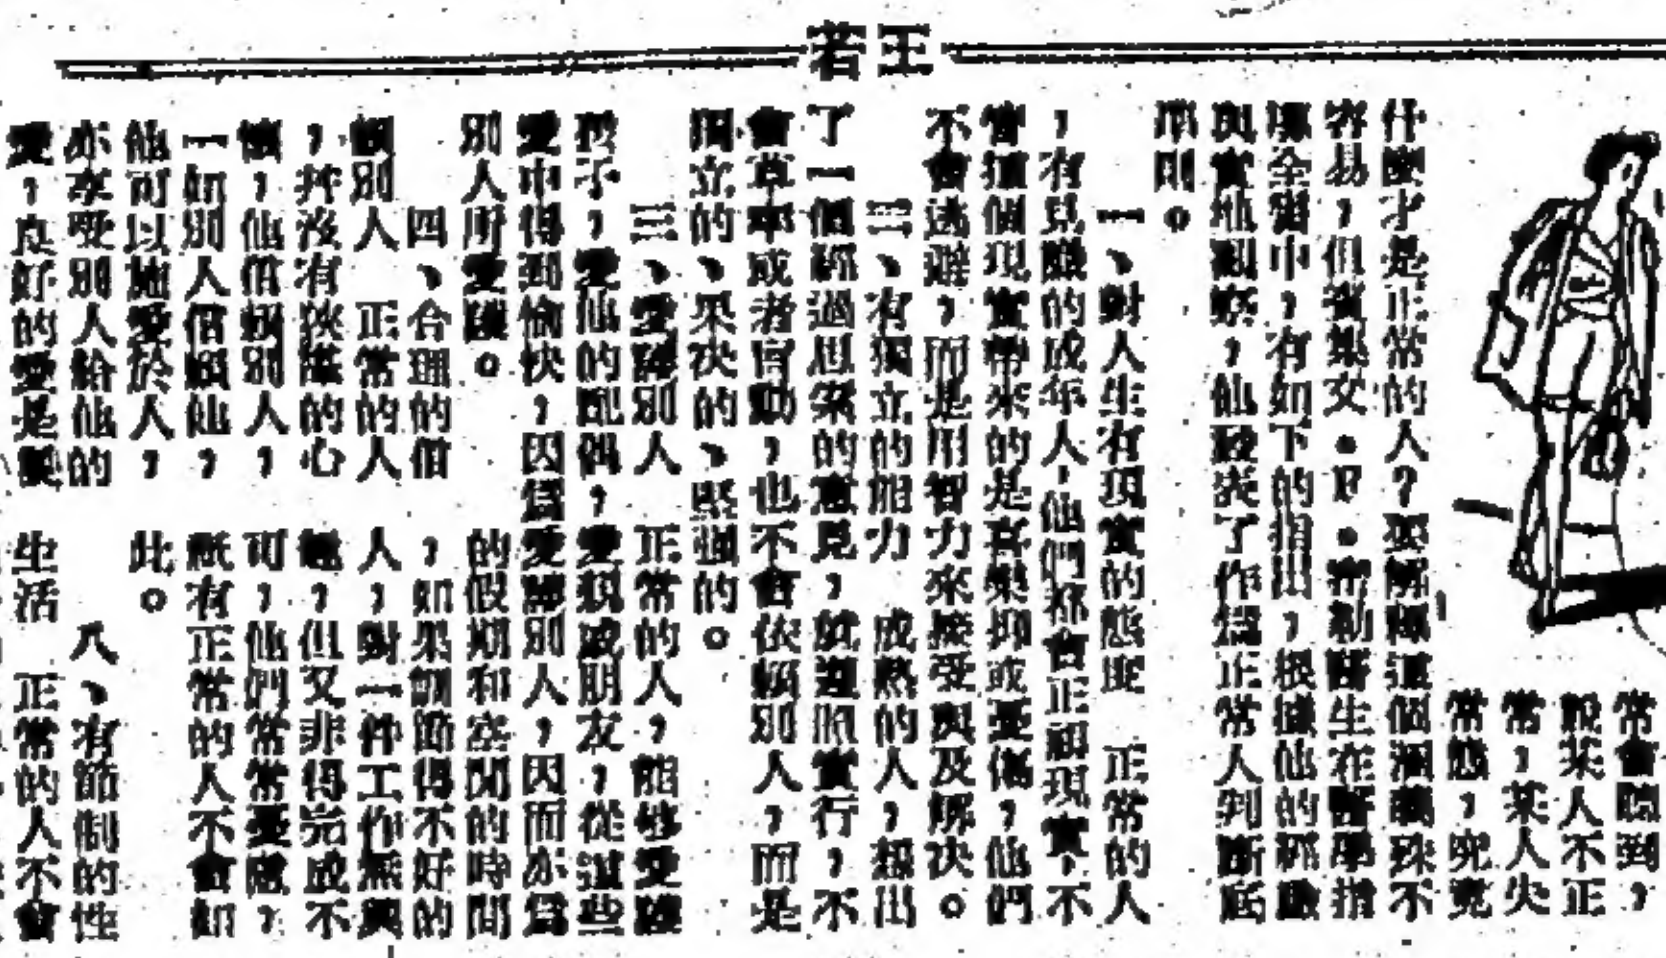 王若
常會聽到,
說某人不正
常,某人失
常態,究竟
什麼才是正常的人?要解釋這個問題殊不
容易,但集文.F.密勒醫生在醫學指
導全書中,有如下的指出,根據他的經驗
與實地觀察,他發表了作為正常人到斷底
準則。
一、對人生有現實的態度 正常的人
,有見識的成年人,他們都會正視現實,不
管這個現實帶來的是喜樂抑或憂傷,他們
不會逃避,而是用智力來接受與及解決。
二、有獨立的能力 成熟的人,想出
了一個經過思索的意見,就實行,不
會草率或者盲動,也不會依賴別人,而是
獨立的、果決的、堅強的。
三、愛護別人 正常的人,能够愛護
孩子,愛他的配偶,愛親戚朋友,從這些
愛中得到愉快,因為愛護別人,因而亦為
別人所愛護。
四、合理的信
賴別人 正常的人
,並沒有狹隘的心
懷,他信賴別人,
一如別人信賴他,
他可以施愛於人,
亦享受別人給他的
愛,良好的愛是雙
的假期和空閒的時間
,如果調節得不好的
人,對一件工作無興
趣,但又非得完成不
可,他們常常憂慮,
祇有正常的人不會如
此。
八、有節制的性
生活 正常的人不會